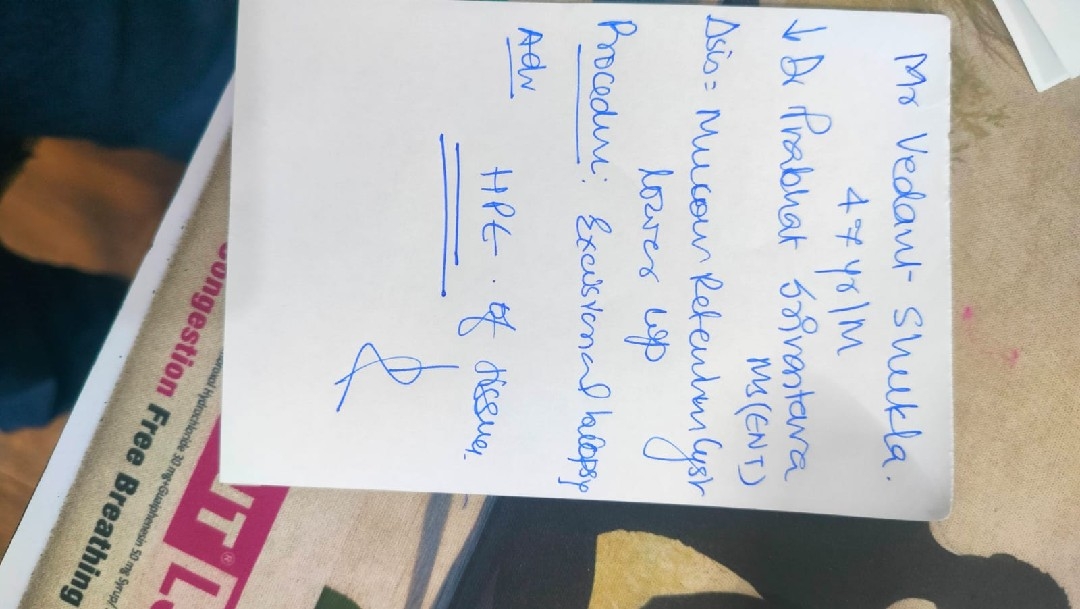 Mr Vedant Shukla.
47 yr/M
↓ Dr Prabhat Srivastava
MS(ENT)
Δsis = Mucous Retention Cyst
lower lip
Procedure: Excisional biopsy
Adv
HPE. of tissue.
Congestion Free Breathing
Hydrochloride 30 mg+Guaiphenesin 50 mg Syrup/